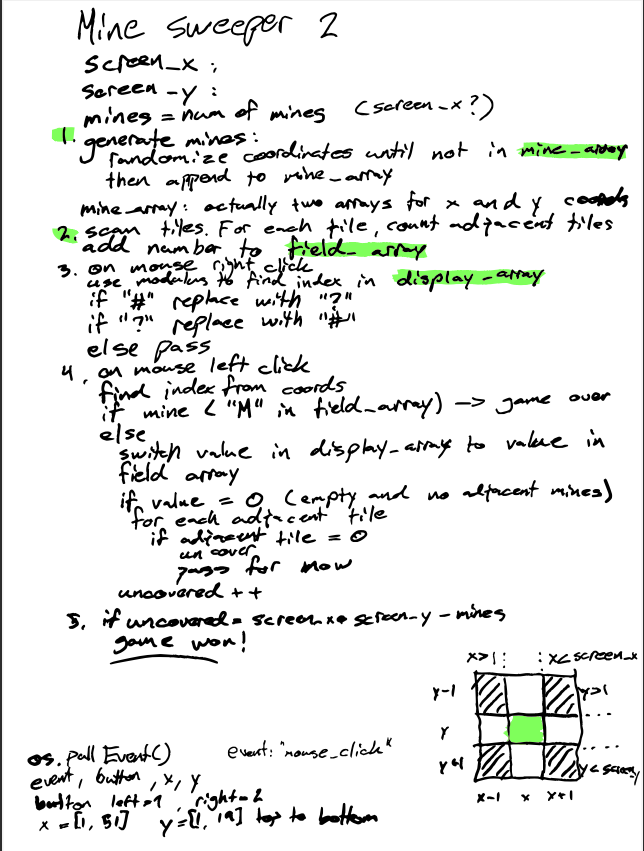 Mine sweeper 2
screen_x :
screen_y :
mines = num of mines (screen_x?)
1. generate mines:
randomize coordinates until not in mine_array
then append to mine_array
mine_array: actually two arrays for x and y coords
2. scan tiles. For each tile, count adjacent tiles
add number to field_array
3. on mouse right click
use modulus to find index in display_array
if "#" replace with "?"
if "?" replace with "#"
else pass
4. on mouse left click
find index from coords
if mine ("M" in field_array) —> game over
else
switch value in display_array to value in
field array
if value = 0 (empty and no adjacent mines)
for each adjacent tile
if adjacent tile = 0
uncover
pass for now
uncovered ++
5. if uncovered = screen_x * screen_y - mines
game won!
x>1 x<screen_x
y-1 y>1
y
y+1 y<screen_y
x-1 x x+1
os.pullEvent() event: "mouse_click"
event, button, x, y
button left=1, right=2
x = [1, 51] y=[1, 19] top to bottom